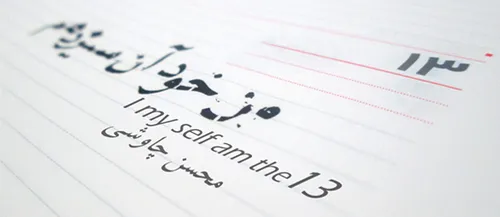 ۱۳
من خود آن سیزدهم
I my self am the 13
محسن چاوشی